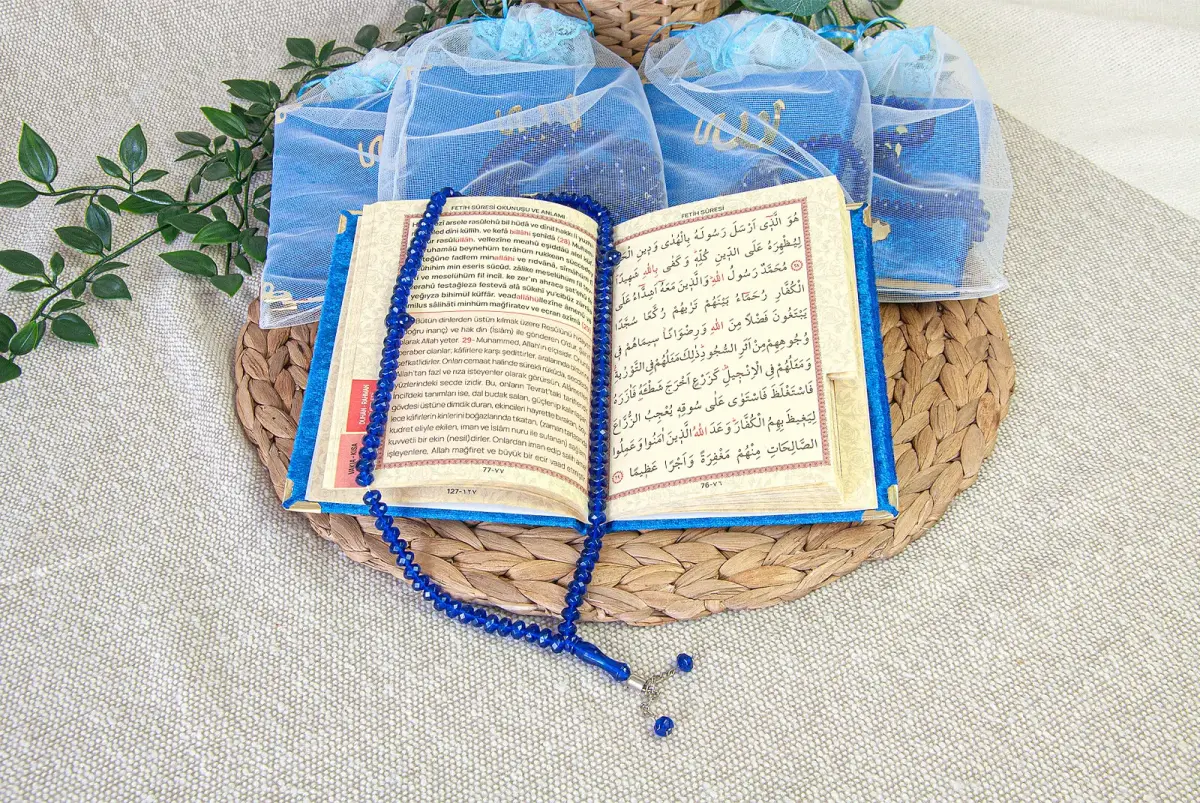 FETİH SÛRESİ OKUNUŞU VE ANLAMI
arsele rasûlehû bil hüdâ ve dînil hakkı li yuzhi
dîni küllih, ve kefâ billâhi şehîdâ (28) Muham
rasûlüllâh, vellezîne meahû eşiddâü alel küf
ruhamâü beynehüm terâhüm rukkean sücceden
teğûne fadlem minallâhi ve rıdvânâ, sîmâhüm fî
min eseris sücûd, zâlike meselühüm fit
ve meselühüm fil incîl, ke zer'ın ahrace şat'ehû
festağleza festevâ alâ sûkıhî yu'cibüz zürra
yeğıyza bihimül küffâr, veadallâhüllezîne âmenû
milus sâlihâti minhüm mağfiratev ve ecran azîmâ (29)
Bütün dinlerden üstün kılmak üzere Resûlünü hidayet
(doğru inanç) ve hak din (İslâm) ile gönderen O'dur. Şahid
olarak Allah yeter. 29- Muhammed, Allah'ın elçisidir. Onunla
beraber olanlar; kâfirlere karşı şedittirler, aralarında
şefkatlidirler. Onları cemaat halinde sürekli rükûda, secdede,
Allah'tan fazl ve rıza isteyenler olarak görürsün. Alâmetleri
yüzlerindeki secde izidir. Bu, onların Tevrat'taki tanıtımıdır.
İncil'deki tanımları ise, dal budak salan, güçlenip kalınlaşan
gövdesi üstüne dimdik duran, ekincileri hayrette bırakan,
lece kâfirlerin kinlerini boğazlarında tıkatan, (zaman tarlasında
kudret eliyle ekilen, iman ve İslâm nuru ile sulanan) sağlam
kuvvetli bir ekin (nesil)dirler. Onlardan iman edip salih amel
işleyenlere, Allah mağfiret ve büyük bir ecir vaad etmiştir.
77-٧٧
127-١٢٧
DUHAN - DUHAN
FETİH SÛRESİ
هُوَ الَّذِى اَرْسَلَ رَسُولَهُ بِالْهُدٰى وَدِينِ الْحَقِّ
لِيُظْهِرَهُ عَلَى الدِّينِ كُلِّهِ وَكَفٰى بِاللّٰهِ شَهِيدًا
﴿٢٨﴾ مُحَمَّدٌ رَسُولُ اللّٰهِ وَالَّذِينَ مَعَهُ اَشِدَّاءُ عَلَى
الْكُفَّارِ رُحَمَاءُ بَيْنَهُمْ تَرٰيهُمْ رُكَّعًا سُجَّدًا
يَبْتَغُونَ فَضْلًا مِنَ اللّٰهِ وَرِضْوَانًا سِيمَاهُمْ فِى
وُجُوهِهِمْ مِنْ اَثَرِ السُّجُودِ ذٰلِكَ مَثَلُهُمْ فِى التَّوْرٰيةِ
وَمَثَلُهُمْ فِى الْاِنْجِيلِ كَزَرْعٍ اَخْرَجَ شَطْـَٔهُ فَاٰزَرَهُ
فَاسْتَغْلَظَ فَاسْتَوٰى عَلٰى سُوقِهِ يُعْجِبُ الزُّرَّاعَ
لِيَغِيظَ بِهِمُ الْكُفَّارَ وَعَدَ اللّٰهُ الَّذِينَ اٰمَنُوا وَعَمِلُوا
الصَّالِحَاتِ مِنْهُمْ مَغْفِرَةً وَاَجْرًا عَظِيمًا ﴿٢٩﴾
76-٧٦